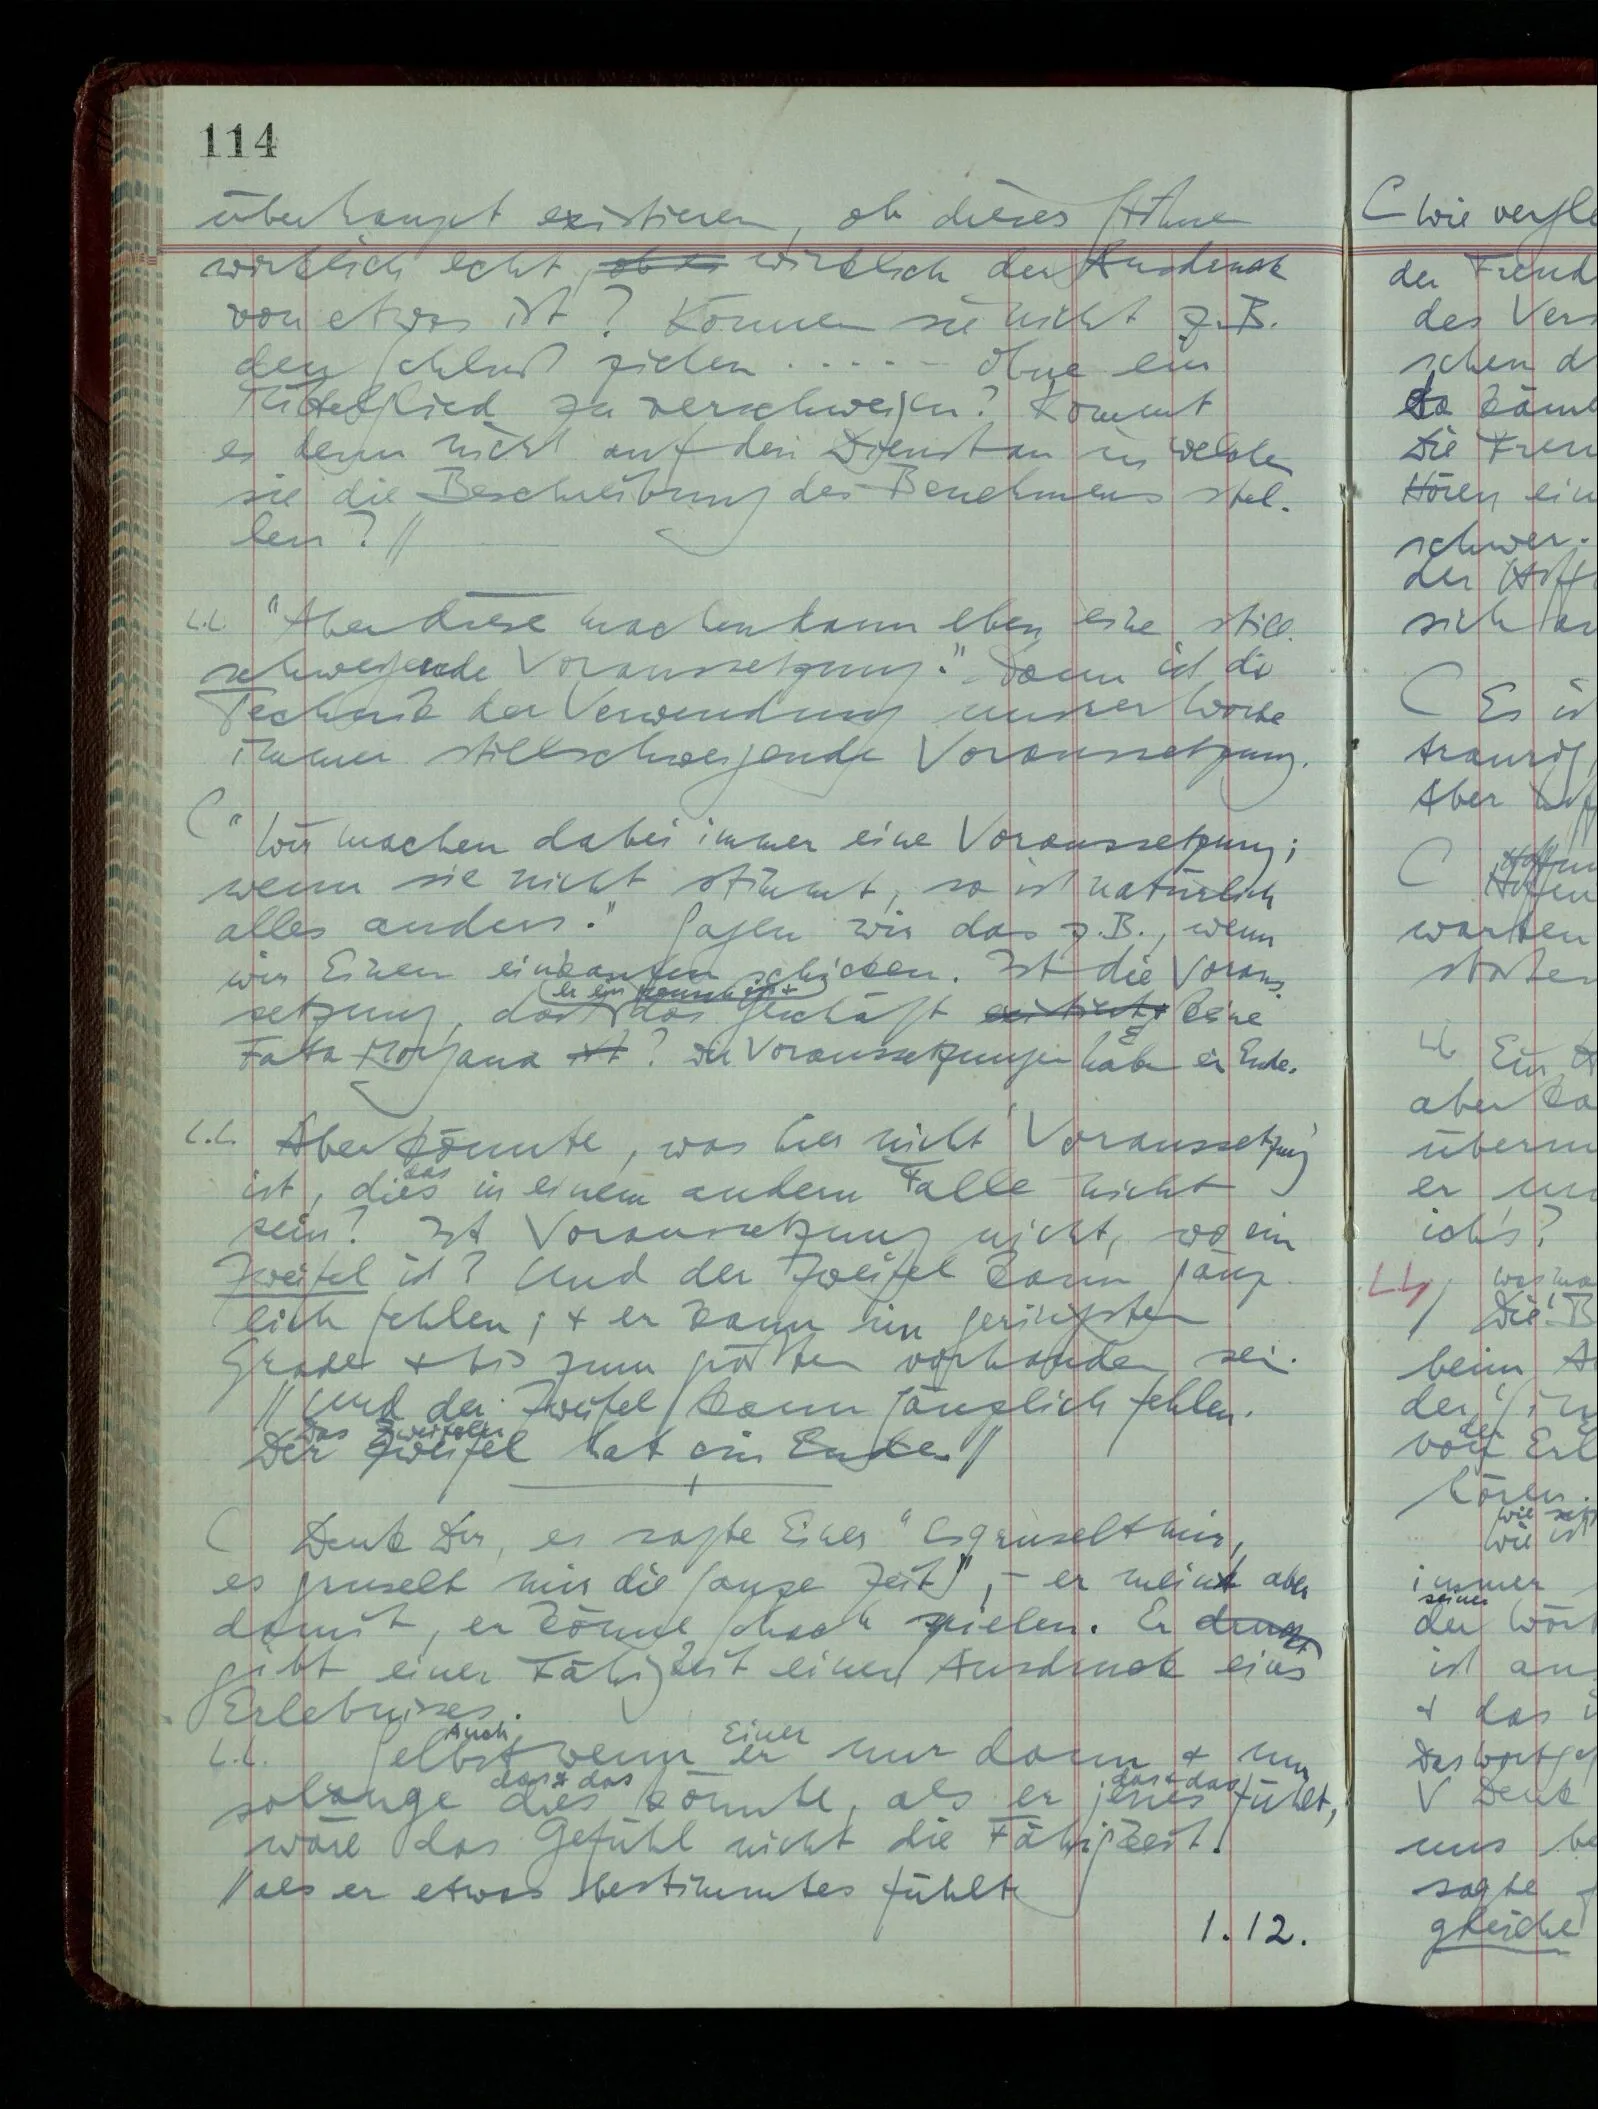 114
überhaupt existieren, ob dieses Stöhnen
wirklich echt, ob es wirklich der Ausdruck
von etwas ist? Können sie nicht z.B.
den Schluß ziehen ..... ohne ein
Mittelglied zu verschweigen? Kommt
es denn nicht auf den Dienst an in welchen
sie die Beschreibung des Benehmens stel-
len? //
"Aber diese machen dann eben eine still-
schweigende Voraussetzung." Dann ist die
Technik der Verwendung unserer Worte
immer stillschweigende Voraussetzung.
C "Wir machen dabei immer eine Voraussetzung;
wenn sie nicht stimmt, so ist natürlich
alles anders." Sagen wir das z.B., wenn
wir Einen einkaufen schicken. Ist die Voraus-
er ein Mensch ist &
setzung, daß das Geschäft existiert keine
Fata Morgana ist? Die Voraussetzungen haben ein Ende.
Aber könnte, was hier nicht 'Voraussetzung'
das
ist, dies in einem andern Falle nicht
sein? Ist Voraussetzung nicht, wo ein
Zweifel ist? Und der Zweifel kann gänz-
lich fehlen; & er kann im geringsten
Grade & bis zum größten vorhanden sein.
// Und der Zweifel kann gänzlich fehlen.
Das Zweifeln
Der Zweifel hat ein Ende. //
C Denk Dir, es sagte Einer "Es gruselt mir,
es gruselt mir die ganze Zeit", – er meint aber
damit, er könne Schach spielen. Er
gibt einer Fähigkeit einen Ausdruck eines
Erlebnisses.
Auch Einer
Selbst wenn er nur dann & nur
das & das das & das
solange dies könnte, als er jenes fühlt,
wäre das Gefühl nicht die Fähigkeit.
// als er etwas bestimmtes fühlt
1.12.
C Wie vergle
des Vers
schen d
schwer.
sich an
C Es is
traurig,
Aber
C
warten
aber ka
ich's?
beim A
von
hören.
immer
seiner
ist an
& das i
V Denk
uns be
sagte
gleiche